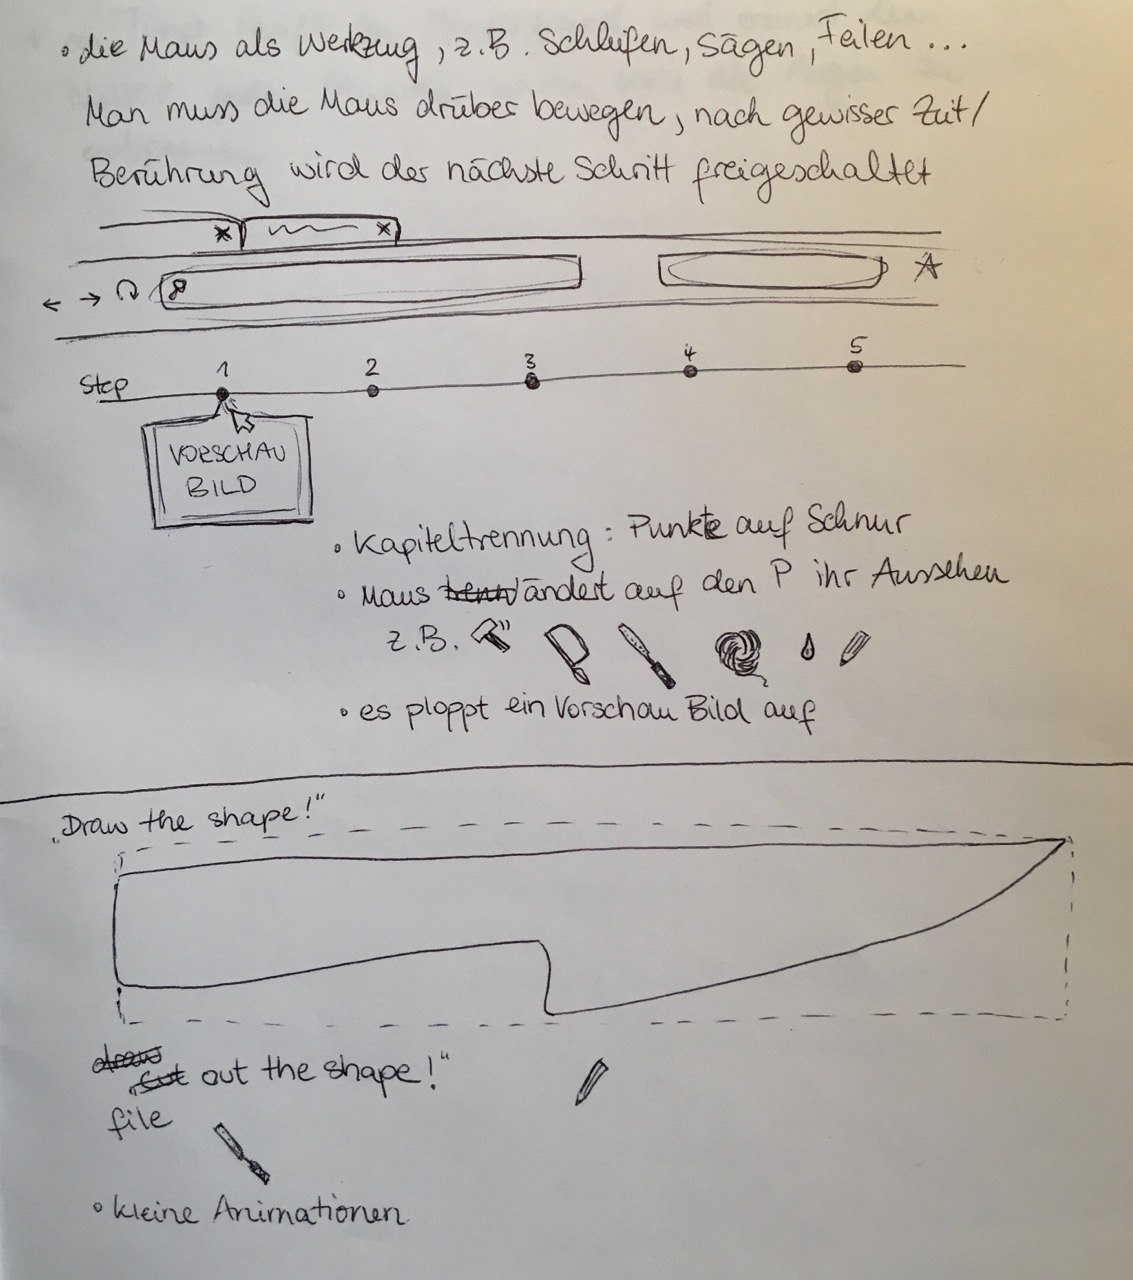 • die Maus als Werkzeug, z.B. Schleifen, Sägen, Feilen ...
Man muss die Maus drüber bewegen, nach gewisser Zeit/
Berührung wird der nächste Schritt freigeschaltet
Step 1 2 3 4 5
VORSCHAU
BILD
• Kapiteltrennung: Punkte auf Schnur
• Maus ändert auf den P ihr Aussehen
z.B.
• es ploppt ein Vorschau Bild auf
„Draw the shape!“
draw
„Cut out the shape!“
file
• kleine Animationen